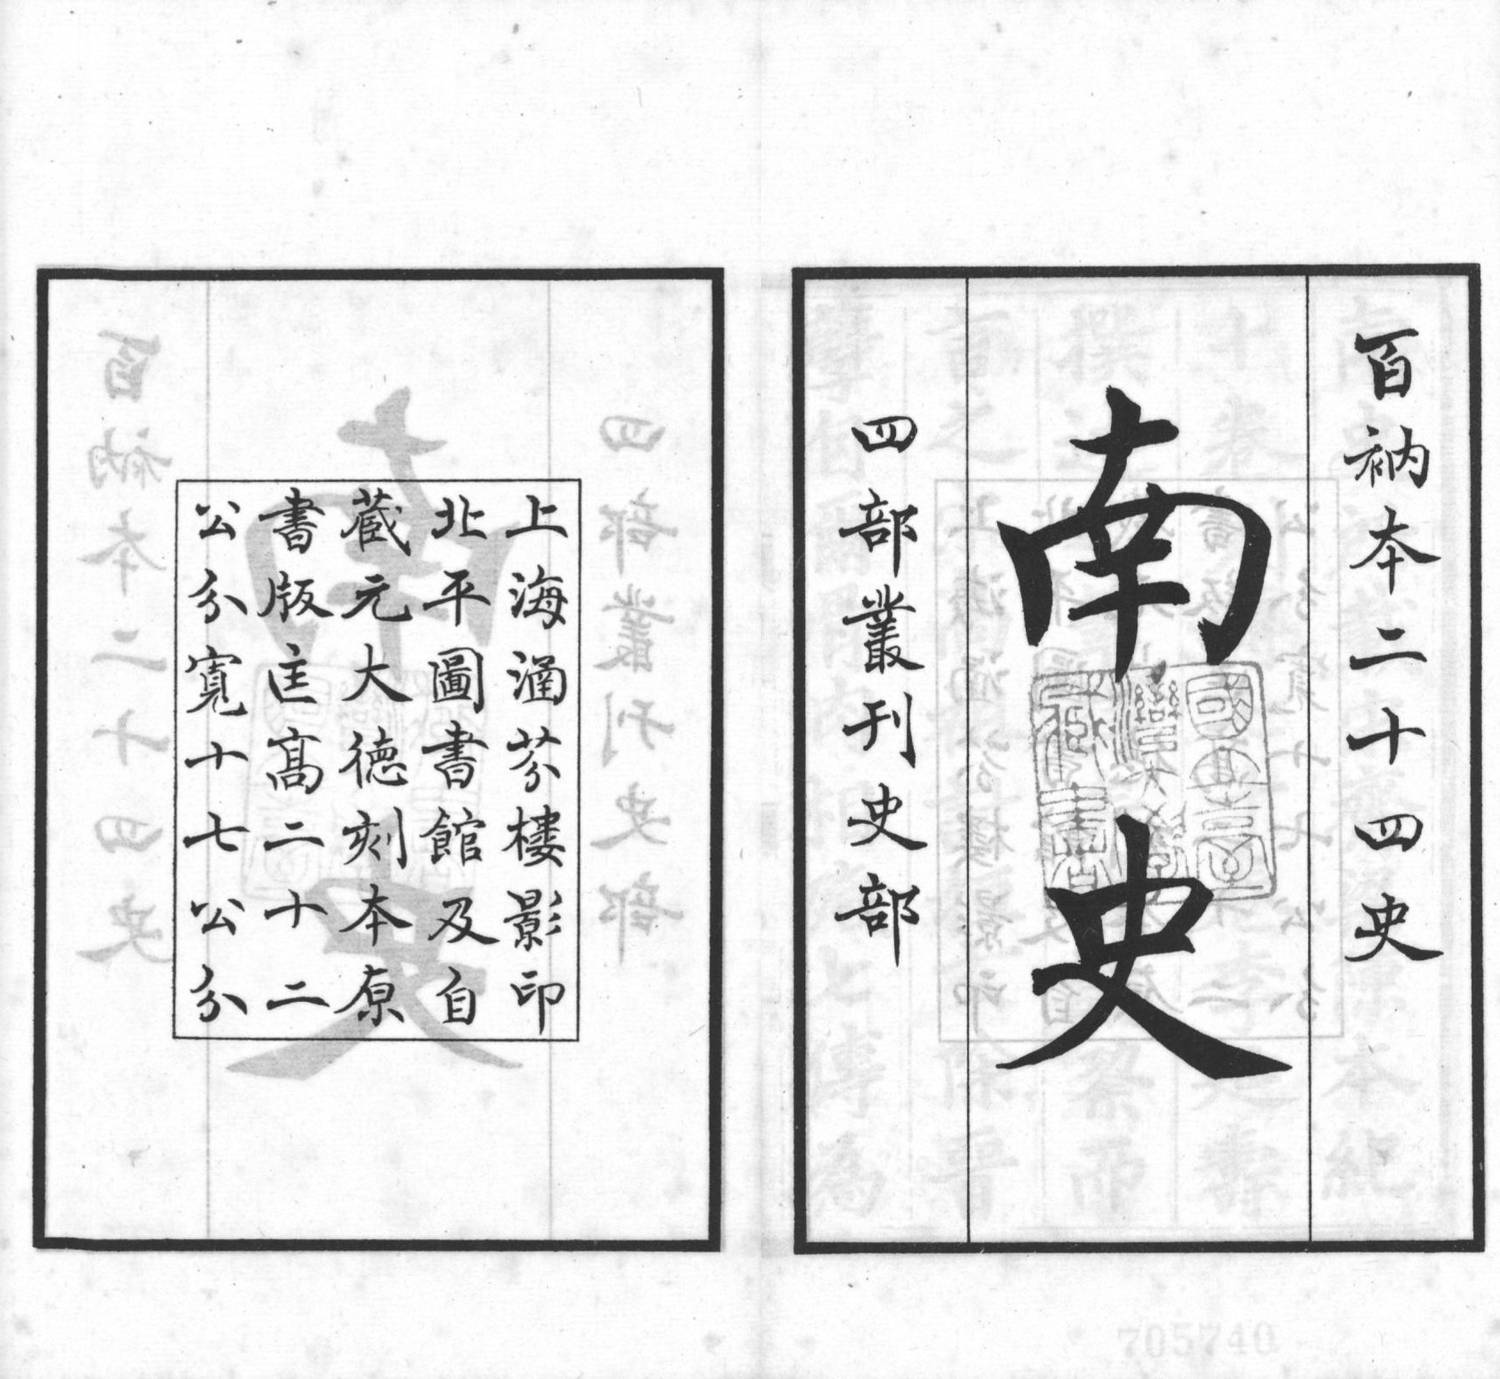 百衲本二十四史
南史
四部叢刊史部
國立臺灣大學圖書館藏書
上海涵芬樓影印
北平圖書館及自
藏元大德刻本原
書版匡高二十二
公分寬十七公分
705740